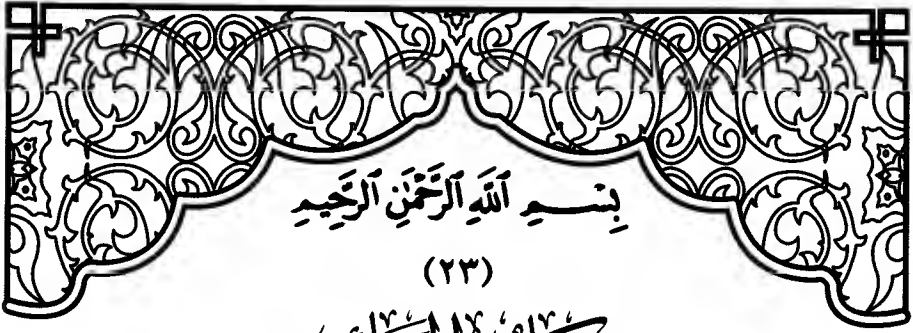 بِسْمِ ٱللَّهِ ٱلرَّحْمَٰنِ ٱلرَّحِيمِ
(٢٣)